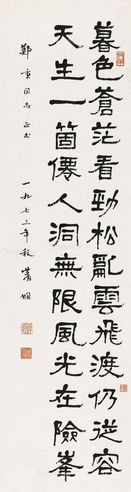 暮色蒼茫看勁松亂雲飛渡仍從容
天生一箇僊人洞無限風光在險峯
鄭重同志正書
一九七三年秋蕭嫻